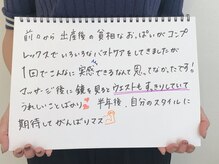 前々から 出産後の貧相なおっぱいがコンプ
レックスでいろいろなバストケアをしてきましたが
1回でこんなに実感できるなんて思ってなかったです!
マッサージ後に鏡を見るとウエストもすっきりしていて
うれしいことばかり 半年後、自分のスタイルに
期待してがんばりマス